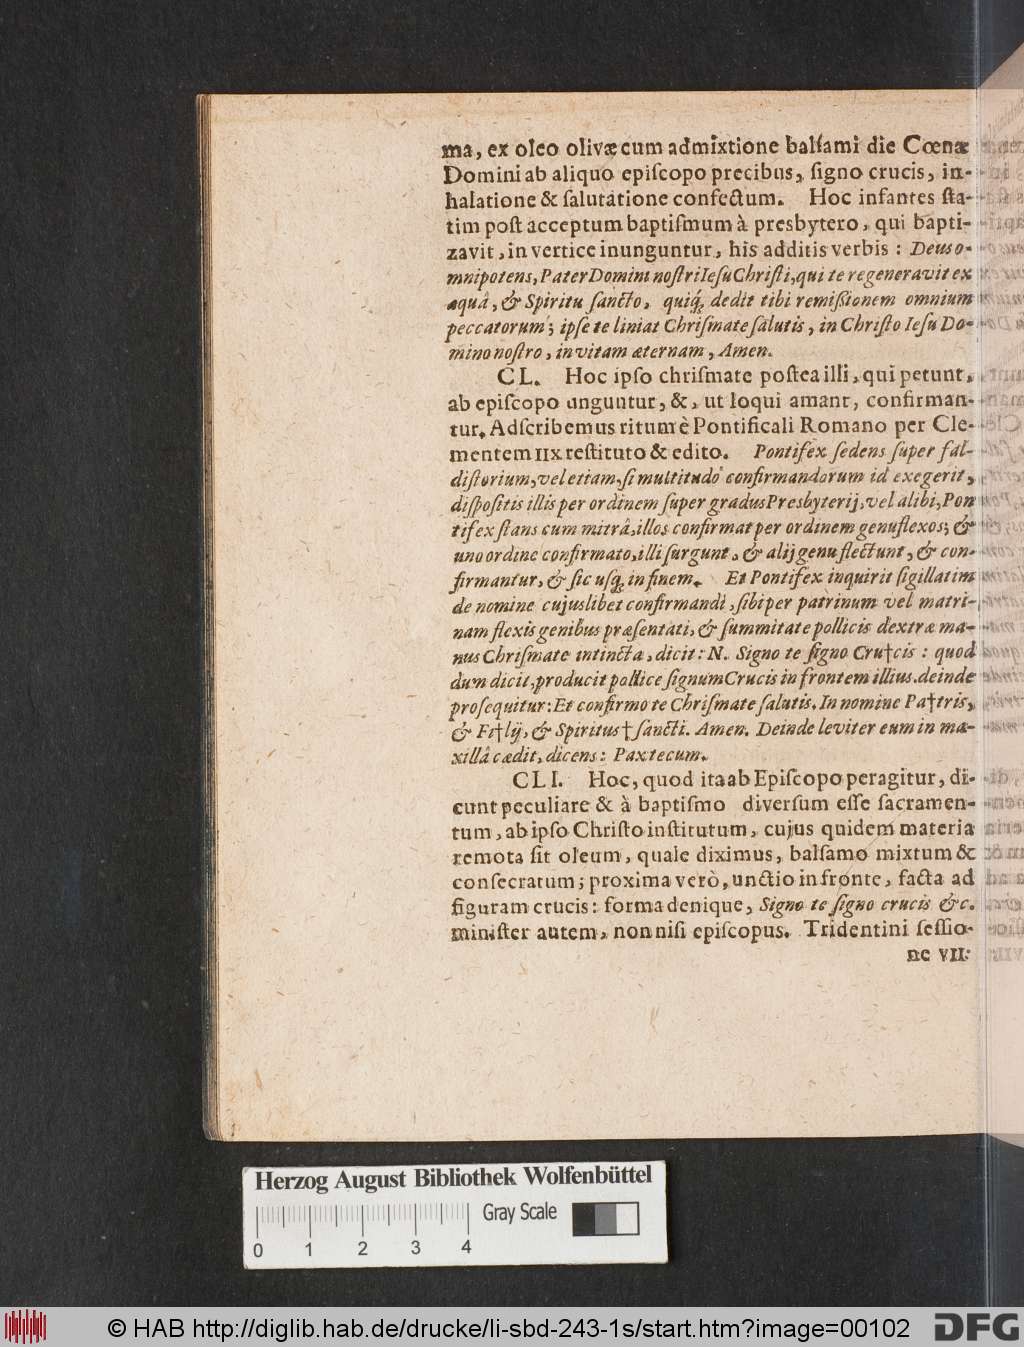 ma, ex oleo olivæ cum admixtione balſami die Cœnæ
Domini ab aliquo epiſcopo precibus, ſigno crucis, in-
halatione & ſalutatione confectum. Hoc infantes ſta-
tim poſt acceptum baptiſmum à presbytero, qui bapti-
zavit, in vertice inunguntur, his additis verbis: Deus o-
mnipotens, Pater Domini noſtri Ieſu Chriſti, qui te regeneravit ex
aquâ, & Spiritu ſancto, quiq́; dedit tibi remißionem omnium
peccatorum; ipſe te liniat Chriſmate ſalutis, in Chriſto Ieſu Do-
mino noſtro, in vitam æternam, Amen.
CL. Hoc ipſo chriſmate poſtea illi, qui petunt,
ab epiſcopo unguntur, &, ut loqui amant, confirman-
tur. Adſcribemus ritum è Pontificali Romano per Cle-
mentem IIX reſtituto & edito. Pontifex ſedens ſuper fal-
diſtorium, vel etiam, ſi multitudo confirmandorum id exegerit,
diſpoſitis illis per ordinem ſuper gradus Presbyterij, vel alibi, Pon
tifex ſtans cum mitrâ, illos confirmat per ordinem genuflexos; &
uno ordine confirmato, illi ſurgunt, & alij genu flectunt, & con-
firmantur, & ſic uſq; in finem. Et Pontifex inquirit ſigillatim
de nomine cujuslibet confirmandi, ſibi per patrinum vel matri-
nam flexis genibus præſentati, & ſummitate pollicis dextræ ma-
nus Chriſmate intincta, dicit: N. Signo te ſigno Cru†cis: quod
dum dicit, producit pollice ſignum Crucis in frontem illius. deinde
proſequitur: Et confirmo te Chriſmate ſalutis. In nomine Pa†tris,
& Fi†lij, & Spiritus † ſancti. Amen. Deinde leviter eum in ma-
xillâ cædit, dicens: Pax tecum.
CLI. Hoc, quod ita ab Epiſcopo peragitur, di-
cunt peculiare & à baptiſmo diverſum eſſe ſacramen-
tum, ab ipſo Chriſto inſtitutum, cujus quidem materia
remota ſit oleum, quale diximus, balſamo mixtum &
conſecratum; proxima verò, unctio in fronte, facta ad
figuram crucis: forma denique, Signo te ſigno crucis &c.
miniſter autem, non niſi epiſcopus. Tridentini ſeſſio-
ne VII:
Herzog August Bibliothek Wolfenbüttel
Gray Scale
0 1 2 3 4
© HAB http://diglib.hab.de/drucke/li-sbd-243-1s/start.htm?image=00102
DFG